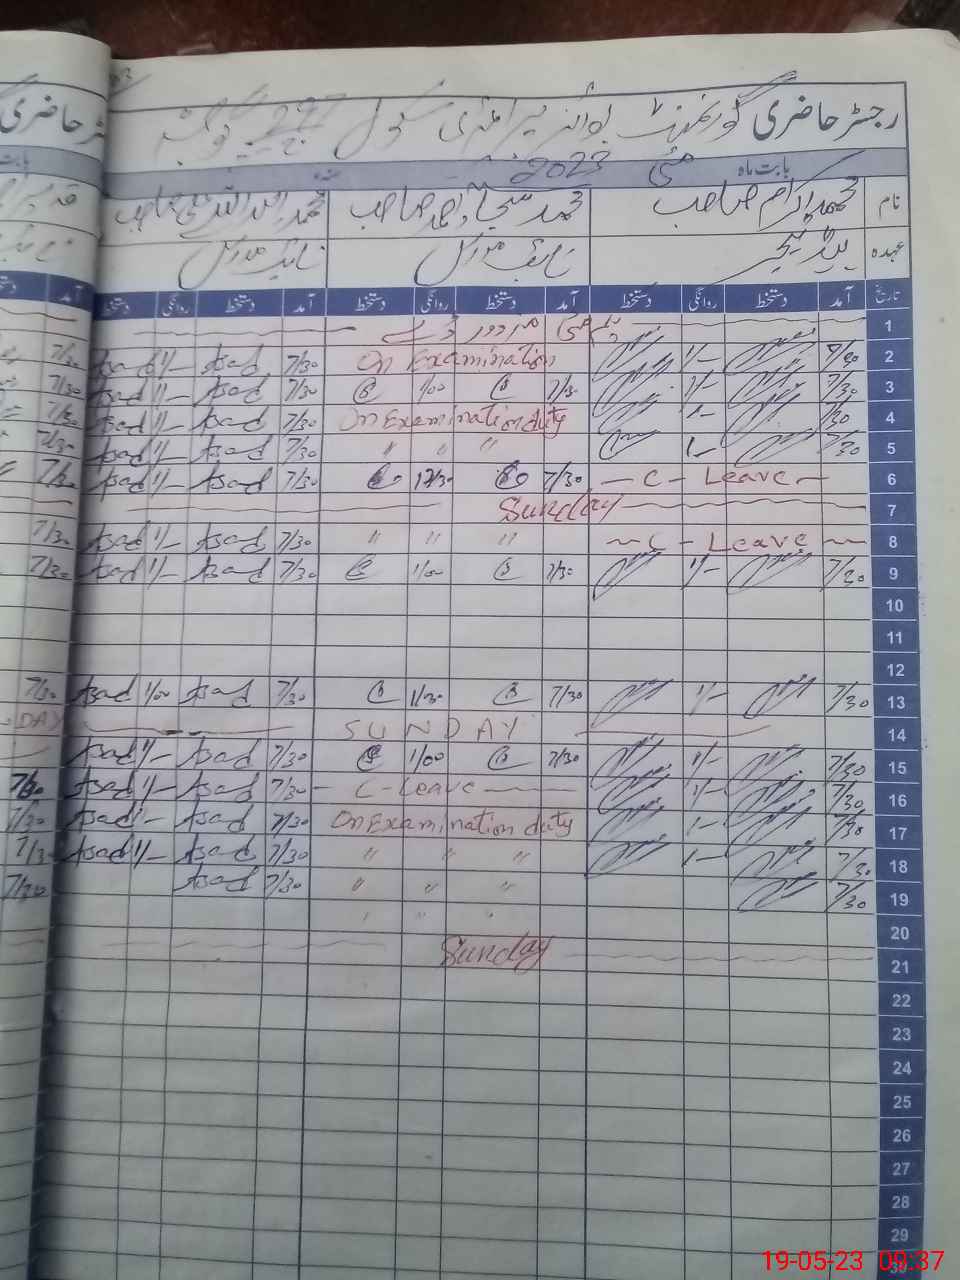 رجسٹر حاضری گورنمنٹ بوائز پرائمری سکول
بابت ماہ مئی 2023
نام محمد اکرم صاحب محمد سجاد احمد صاحب محمد اسد اللہ صاحب
عہدہ ہیڈ ٹیچر نائب مدرس نائب مدرس
تاریخ آمد دستخط روانگی دستخط آمد دستخط روانگی دستخط آمد دستخط روانگی دستخط
1 یکم مئی مزدور ڈے
2 7/30 1/- On Examination 7/30 Asad 1/- Asad
3 7/30 1/- 7/30 1/00 7/30 Asad 1/- Asad
4 7/30 1/- On Examination duty 7/30 Asad 1/- Asad
5 7/30 1/- " " " 7/30 Asad 1/- Asad
6 — C - Leave — 7/30 12/30 7/30 Asad 1/- Asad
7 Sunday
8 ~ C - Leave ~ " " " 7/30 Asad 1/- Asad
9 7/30 1/- 7/30 1/00 7/30 Asad 1/- Asad
10
11
12
13 7/30 1/- 7/30 1/30 7/30 Asad 1/00 Asad
14 SUNDAY
15 7/30 1/- 7/30 1/00 7/30 Asad 1/- Asad
16 7/30 1/- — C - Leave — 7/30 Asad 1/- Asad
17 7/30 1/- On Examination duty 7/30 Asad 1/- Asad
18 7/30 1/- " " " 7/30 Asad 1/- Asad
19 7/30 " " " 7/30 Asad
20 " " "
21 Sunday
22
23
24
25
26
27
28
29
30
19-05-23 09:37